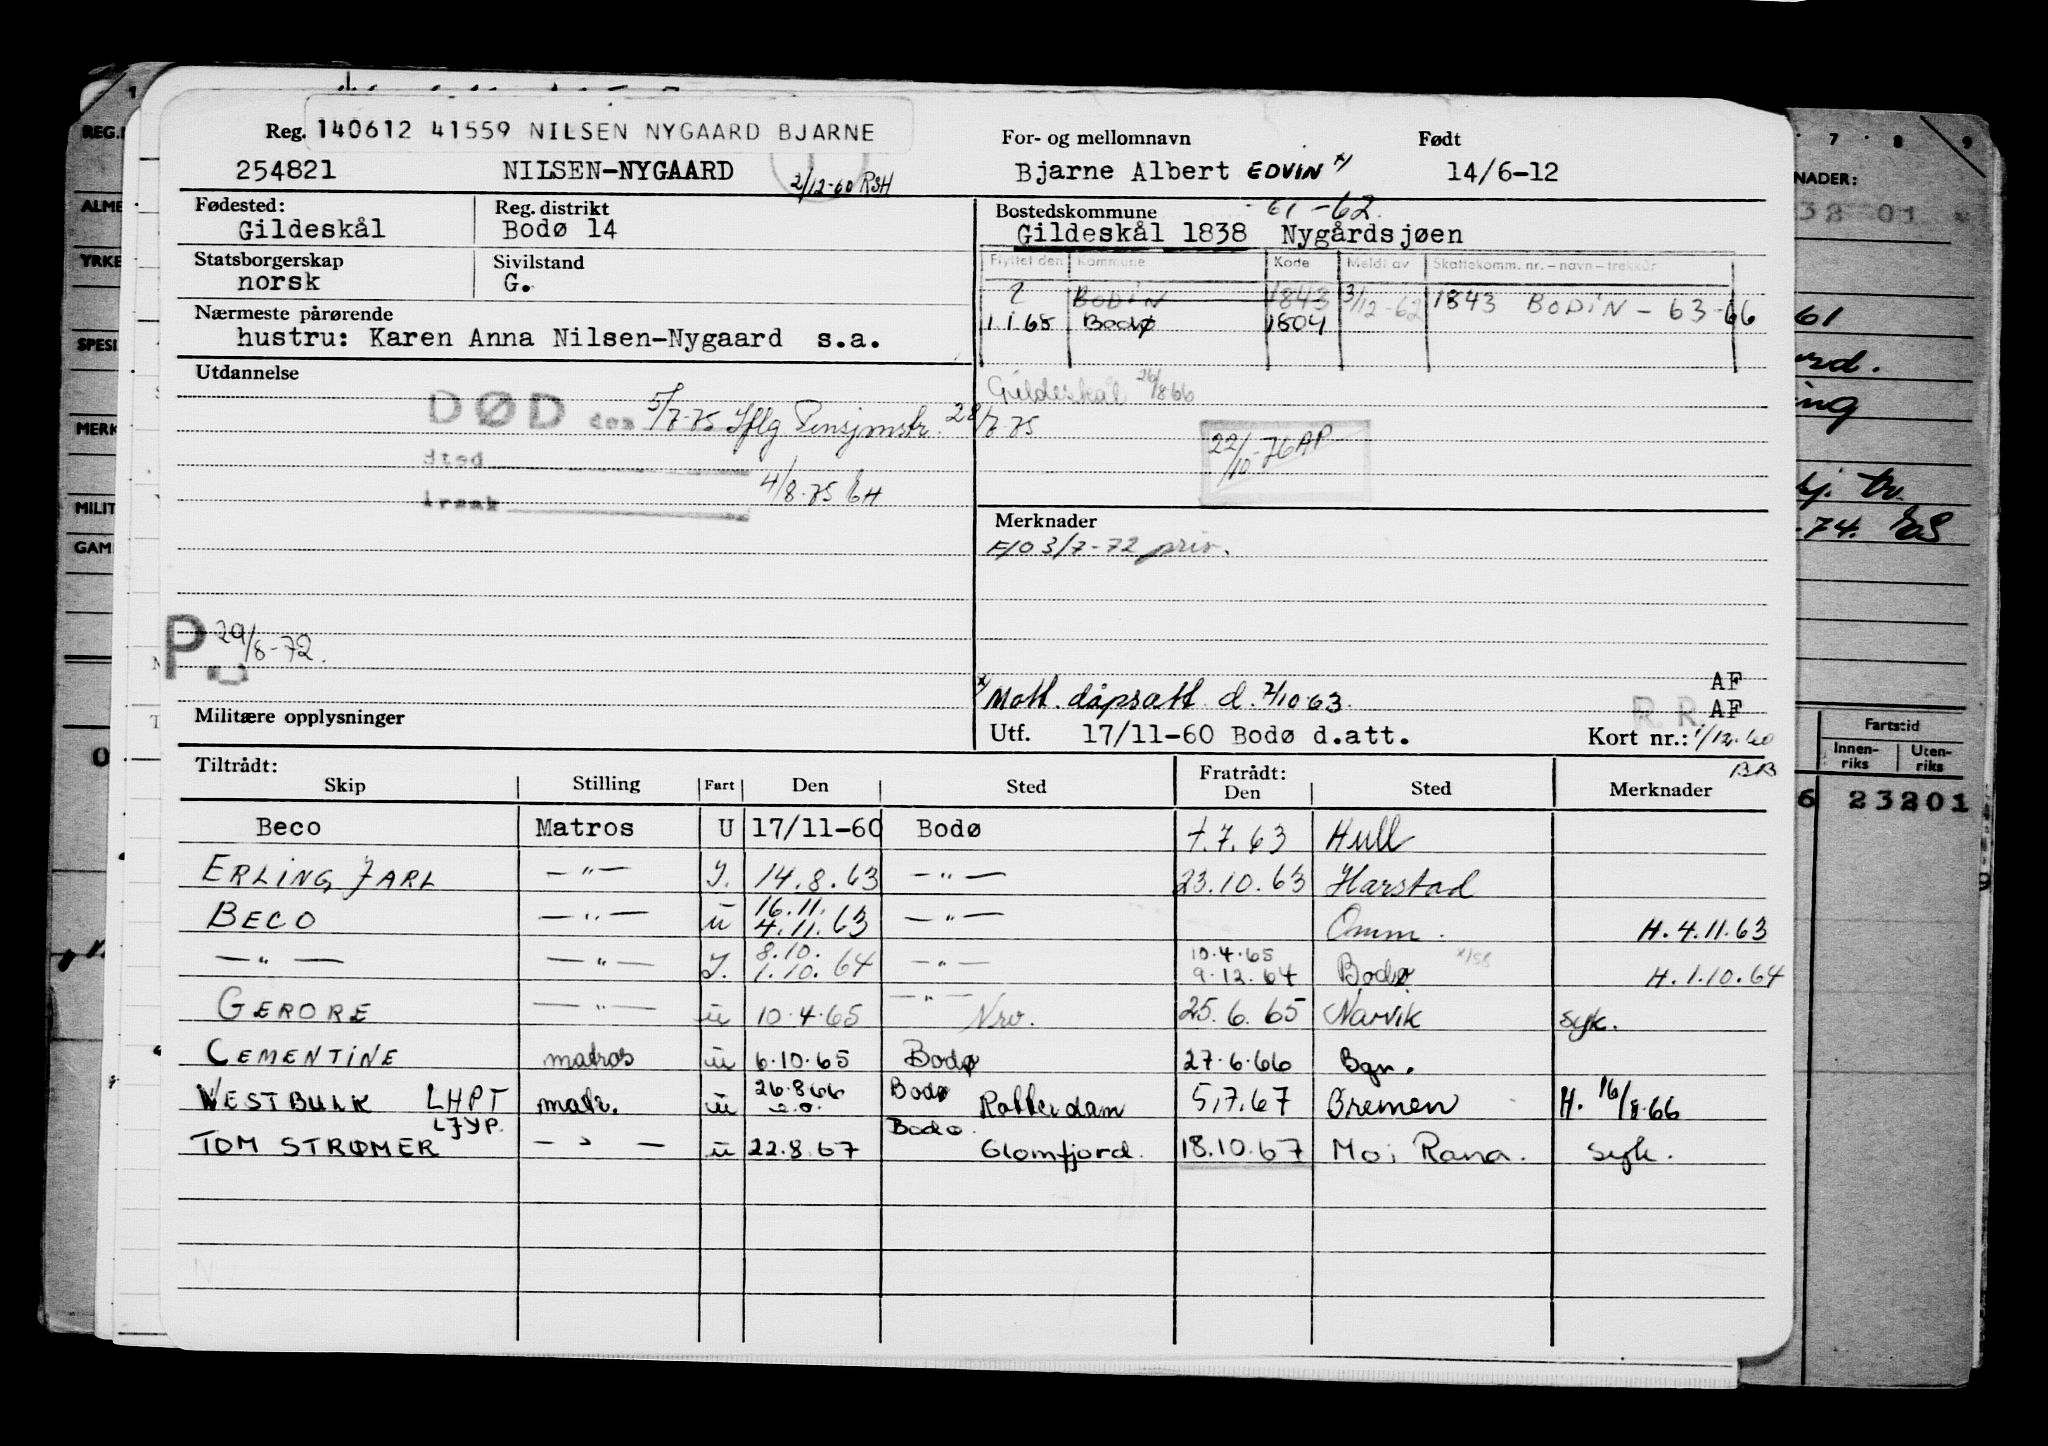 Reg. 140612 41559 NILSEN NYGAARD BJARNE
For- og mellomnavn Født
254821 NILSEN-NYGAARD 2/12-60 RSH
Bjarne Albert EDVIN x/ 14/6-12
Fødested: Reg. distrikt
Gildeskål Bodø 14
Bostedskommune 61-62
Gildeskål 1838 Nygårdsjøen
Statsborgerskap Sivilstand
norsk G.
Flyttet den Kommune Kode Meldt av Skattekomm. nr. - navn - trekkår
? BODIN 1843 3/12-62 1843 BODIN - 63-66
1 1 65 Bodø 1804
Nærmeste pårørende
hustru: Karen Anna Nilsen-Nygaard s.a.
Utdannelse
Gildeskål 26/8 66
DØD den 5/7-75 Iflg Pensjonstr. 28/7-75
Sted
4/8-75 EH
22/10-76 AP
Årsak
Merknader
F/O 3/7-72 priv.
P 29/8-72.
x/ Mott. dåpsatt. d. 2/10 63.
AF
AF
R R
Militære opplysninger
Utf. 17/11-60 Bodø d.att. Kort nr.: 1/12-60
BB
Tiltrådt: Fratrådt:
Skip Stilling Fart Den Sted Den Sted Merknader
Beco Matros U 17/11-60 Bodø 7.7.63 Hull
ERLING JARL — " — I. 14.8.63 — " — 23.10.63 Harstad
BECO — " — U 16.11. 4.11.63 — " — Omm. H. 4.11.63
— " — — " — I. 8.10. 1.10.64 — " — 10.4.65 9.12.64 Bodø H. 1.10.64
GERORE — " — U 10.4.65 — " — Nrv. 25.6.65 Narvik syk.
CEMENTINE matros U 6.10.65 Bodø 27.6.66 Bgn.
WESTBULK LHPT matr. U 26.8.66 Bodø Rotterdam 5.7.67 Bremen H. 16/8.66
TOM STRØMER LJYP. — " — U 22.8.67 Bodø. Glomfjord. 18.10.67 Mo i Rana. syk.
7 8 9
NADER:
61
-74.
Fartstid
Innen-riks Uten-riks
6 23201
REG.
ALME
YRKE
SPESI
MERK
MILIT
GAM